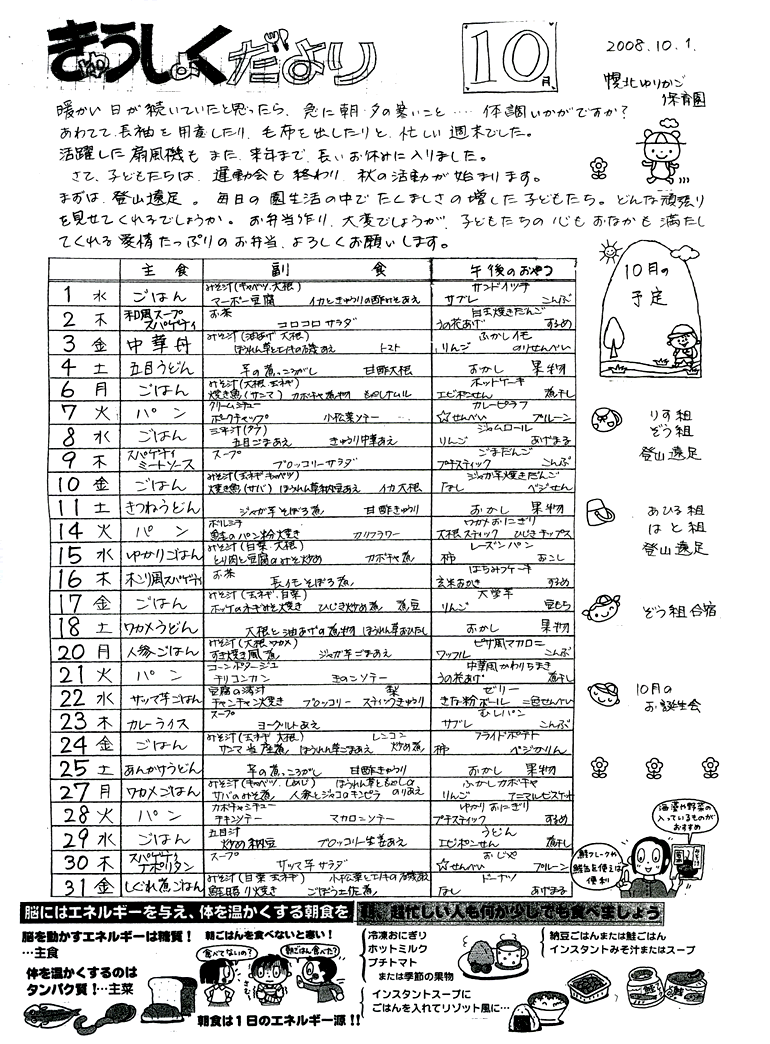 きゅうしょくだより
10月
2008.10.1.
幌北ゆりかご
保育園
暖かい日が続いていたと思ったら、急に朝・夕の寒いこと…… 体調いかがですか?
あわてて、長袖を用意したり、毛布を出したりと、忙しい週末でした。
活躍した扇風機もまた、来年まで、長いお休みに入りました。
さて、子どもたちは、運動会も終わり、秋の活動が始まります。
まずは、登山遠足。毎日の園生活の中でたくましさの増した子どもたち。どんな頑張り
を見せてくれるでしょうか。お弁当作り、大変でしょうが、子どもたちの心もおなかも満たし
てくれる愛情たっぷりのお弁当、よろしくお願いします。
主食 副食 午後のおやつ
1 水 ごはん みそ汁(キャベツ、大根) マーボー豆腐 イカときゅうりの酢みそあえ サンドイッチ サブレ こんぶ
2 木 和風スープスパゲティ お茶 コロコロサラダ 白玉焼きだんご うの花あげ するめ
3 金 中華丼 みそ汁(油あげ 大根) ほうれん草とエノキの磯あえ トマト ふかしイモ りんご のりせんべい
4 土 五目うどん 芋の煮っころがし 甘酢大根 おかし 果物
6 月 ごはん みそ汁(大根、玉ネギ) 焼き魚(サンマ) カボチャ煮物 もやしナムル ホットケーキ エビポンせん 煮干し
7 火 パン クリームシチュー ポークチャップ 小松菜ソテー カレーピラフ ☆せんべい プルーン
8 水 ごはん 三平汁(タラ) 五目ごまあえ きゅうり中華あえ ジャムロール りんご あげまる
9 木 スパゲティミートソース スープ ブロッコリーサラダ ごまだんご プチスティック こんぶ
10 金 ごはん みそ汁(玉ネギ キャベツ) 焼き魚(サバ) ほうれん草納豆あえ イカ大根 ジャガ芋焼きだんご なし ベジせん
11 土 きつねうどん ジャガ芋そぼろ煮 甘酢きゅうり おかし 果物
14 火 パン ボルシチ 鮭のパン粉焼き カリフラワー ワカメおにぎり 大根スティック ひじきチップス
15 水 ゆかりごはん みそ汁(白菜、大根) とり肉と豆腐のみそ炒め カボチャ煮 レーズンパン 柿 おこし
16 木 木こり風スパゲティ お茶 長イモそぼろ煮 はちみつケーキ 玄米あられ するめ
17 金 ごはん みそ汁(玉ネギ、白菜) ホッケのネギみそ焼き ひじき炒め煮 煮豆 大学芋 りんご 豆もち
18 土 ワカメうどん 大根と油あげの煮物 ほうれん草おひたし おかし 果物
20 月 人参ごはん みそ汁(大根 ワカメ) すき焼き風煮 ジャガ芋ごまあえ ピザ風マカロニ ワッフル こんぶ
21 火 パン コーンポタージュ チリコンカン きのこソテー 中華風かわりちまき うの花あげ 煮干し
22 水 サツマ芋ごはん 豆腐の清汁 梨 チャンチャン焼き ブロッコリー スティックきゅうり ゼリー きな粉ボール 二色せんべい
23 木 カレーライス スープ ヨーグルトあえ むしパン サブレ こんぶ
24 金 ごはん みそ汁(玉ネギ 大根) レンコン サンマ生姜煮 ほうれん草ごまあえ 炒め煮 フライドポテト 柿 ベジかりん
25 土 あんかけうどん 芋の煮っころがし 甘酢きゅうり おかし 果物
27 月 ワカメごはん みそ汁(キャベツ、しめじ) ほうれん草ともやしの サバのみそ煮 人参とジャコのキンピラ のりあえ ふかしカボチャ りんご アニマルビスケット
28 火 パン カボチャシチュー チキンソテー マカロニソテー ゆかりおにぎり プチスティック するめ
29 水 ごはん 五目汁 炒め納豆 ブロッコリー生姜あえ うどん エビポンせん 煮干し
30 木 スパゲティナポリタン スープ サツマ芋サラダ おじや ☆せんべい プルーン
31 金 しぐれ煮ごはん みそ汁(白菜 玉ネギ) 小松菜とエノキの磯あえ 鮭照り焼き ごぼう土佐煮 ドーナツ なし あげまる
10月の
予定
りす組
ぞう組
登山遠足
あひる組
はと組
登山遠足
ぞう組合宿
10月の
お誕生会
海藻や野菜の
入っているものが
おすすめ
鮭フレークや
鮭缶を使えば
便利
脳にはエネルギーを与え、体を温かくする朝食を 超忙しい人も何か少しでも食べましょう
脳を動かすエネルギーは糖質!
…主食
体を温かくするのは
タンパク質!…主菜
朝ごはんを食べないと寒い!
食べてないの?
朝ごはん食べた?
朝食は1日のエネルギー源!!
冷凍おにぎり
ホットミルク
プチトマト
または季節の果物
インスタントスープに
ごはんを入れてリゾット風に…
納豆ごはんまたは鮭ごはん
インスタントみそ汁またはスープ
鮭
鮭